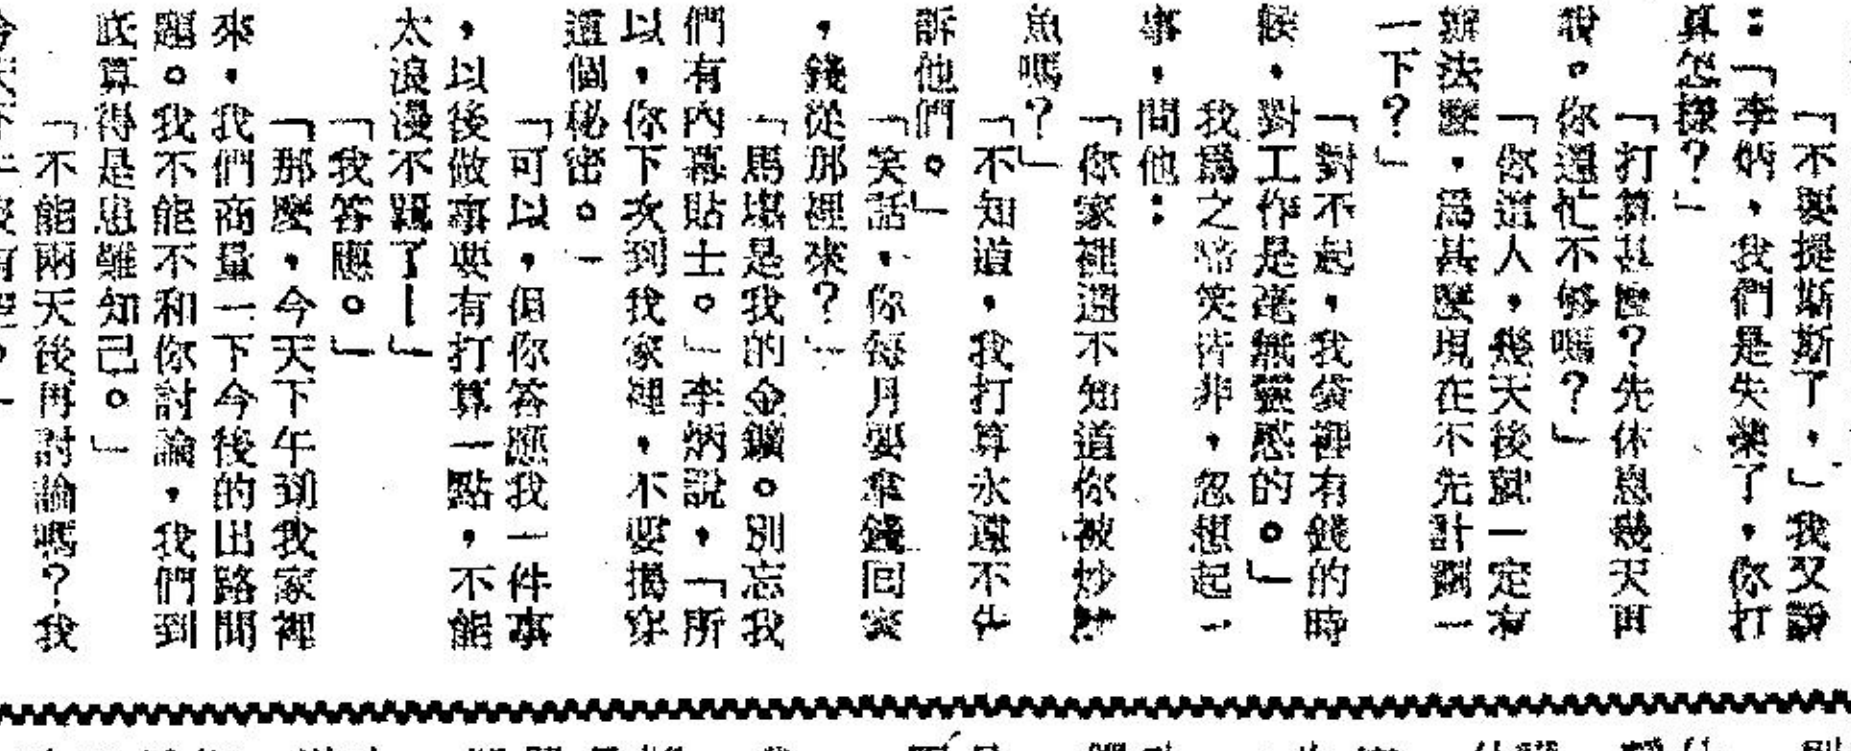 「不要提斯斯了，」我又說
：「李炳，我們是失業了，你打
真怎樣？」
「打算甚麼？先休息幾天再
說。你還忙不够嗎？」
「你這人，幾天後就一定有
辦法麼，爲甚麼現在不先計劃一
一下？」
「對不起，我袋裡有錢的時
候，對工作是毫無靈感的。」
我爲之啼笑皆非，忽想起一
事，問他：
「你家裡還不知道你被炒魷
魚嗎？」
「不知道，我打算永遠不告
訴他們。」
「笑話，你每月要拿錢回家
，錢從那裡來？」
「馬塲是我的金鑛。別忘我
們有內幕貼士。」李炳說，「所
以，你下次到我家裡，不要揭穿
這個秘密。」
「可以，但你答應我一件事
，以後做事要有打算一點，不能
太浪漫不覊了—」
「我答應。」
「那麼，今天下午到我家裡
來，我們商量一下今後的出路問
題。我不能不和你討論，我們到
底算得是患難知己。」
「不能兩天後再討論嗎？我